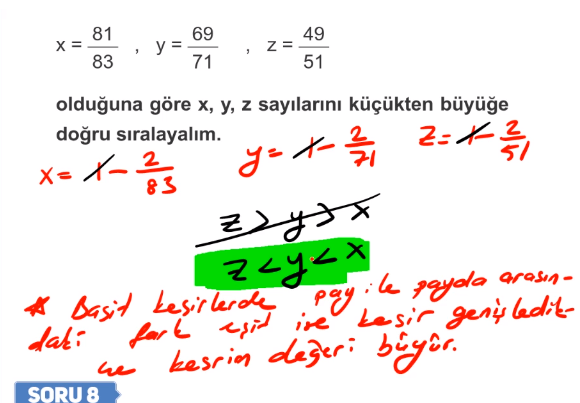 x = 81/83 , y = 69/71 , z = 49/51
olduğuna göre x, y, z sayılarını küçükten büyüğe
doğru sıralayalım.
x = 1 - 2/83 y = 1 - 2/71 z = 1 - 2/51
z > y > x
z < y < x
* Basit kesirlerde pay ile payda arasın-
daki fark eşit ise kesir genişledik-
çe kesrin değeri büyür.
SORU 8